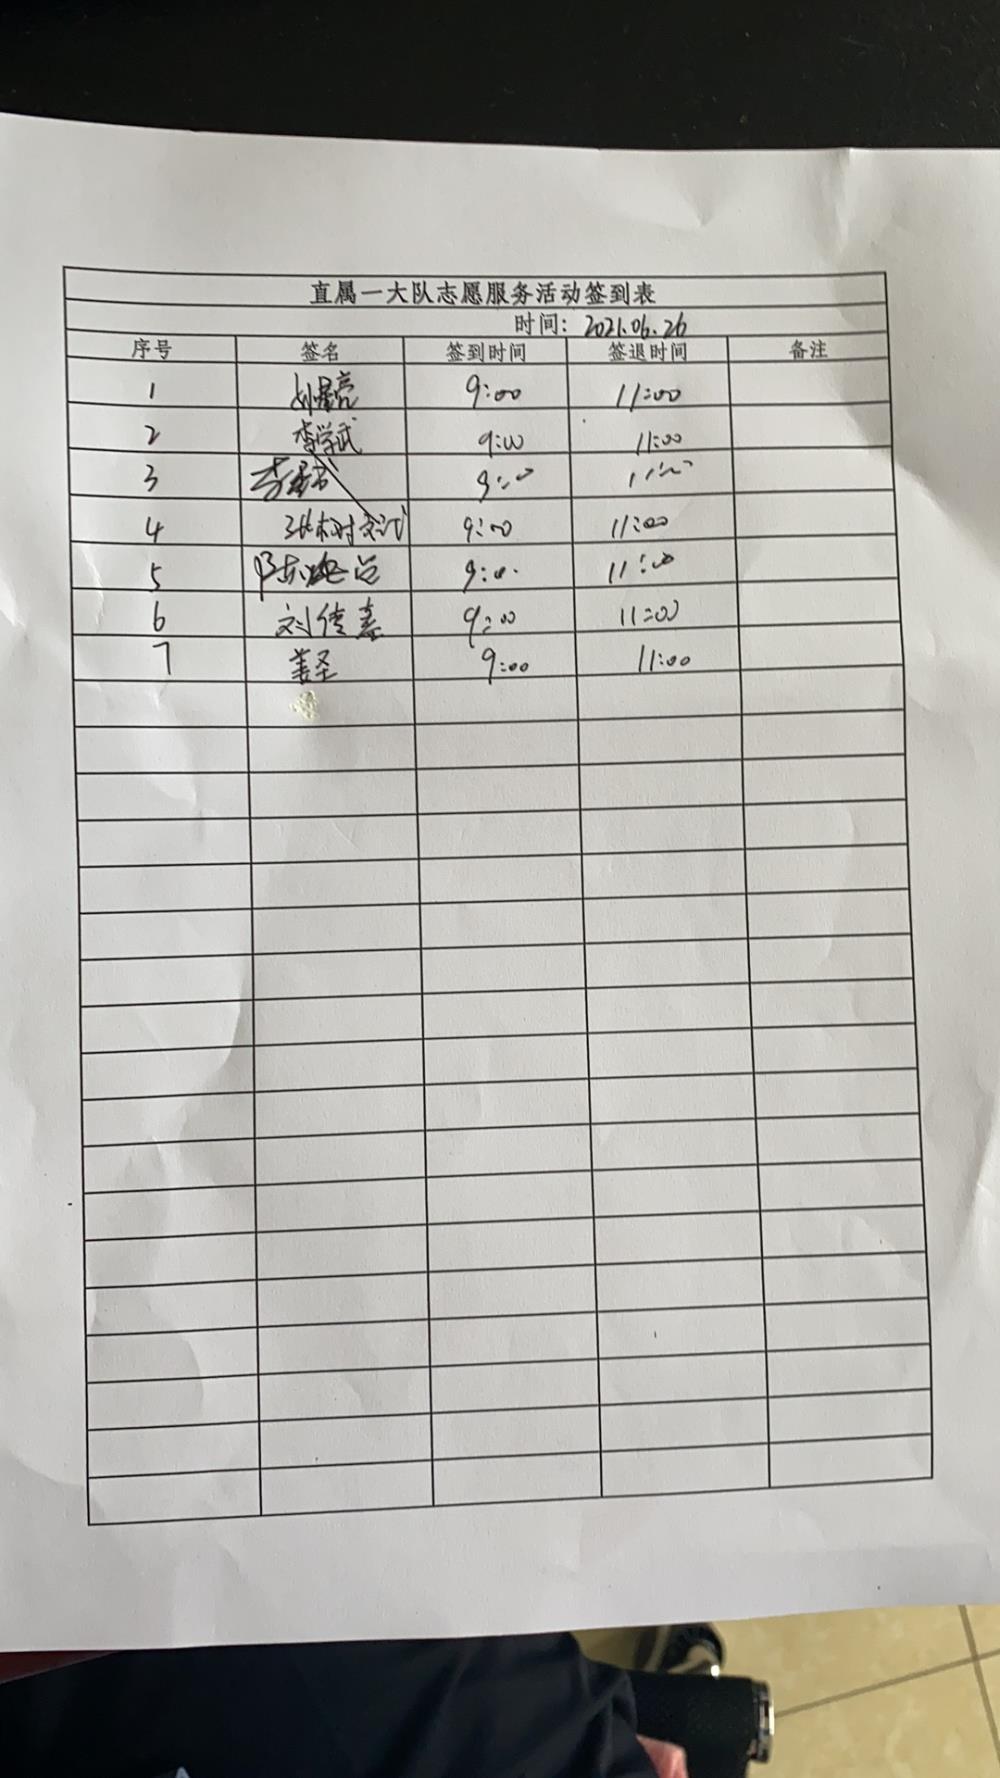 直属一大队志愿服务活动签到表
时间: 2021.06.26
序号 签名 签到时间 签退时间 备注
1 9:00 11:00
2 李学武 9:00 11:00
3 9:00 11:00
4 9:00 11:00
5 9:00 11:00
6 刘传嘉 9:00 11:00
7 姜圣 9:00 11:00